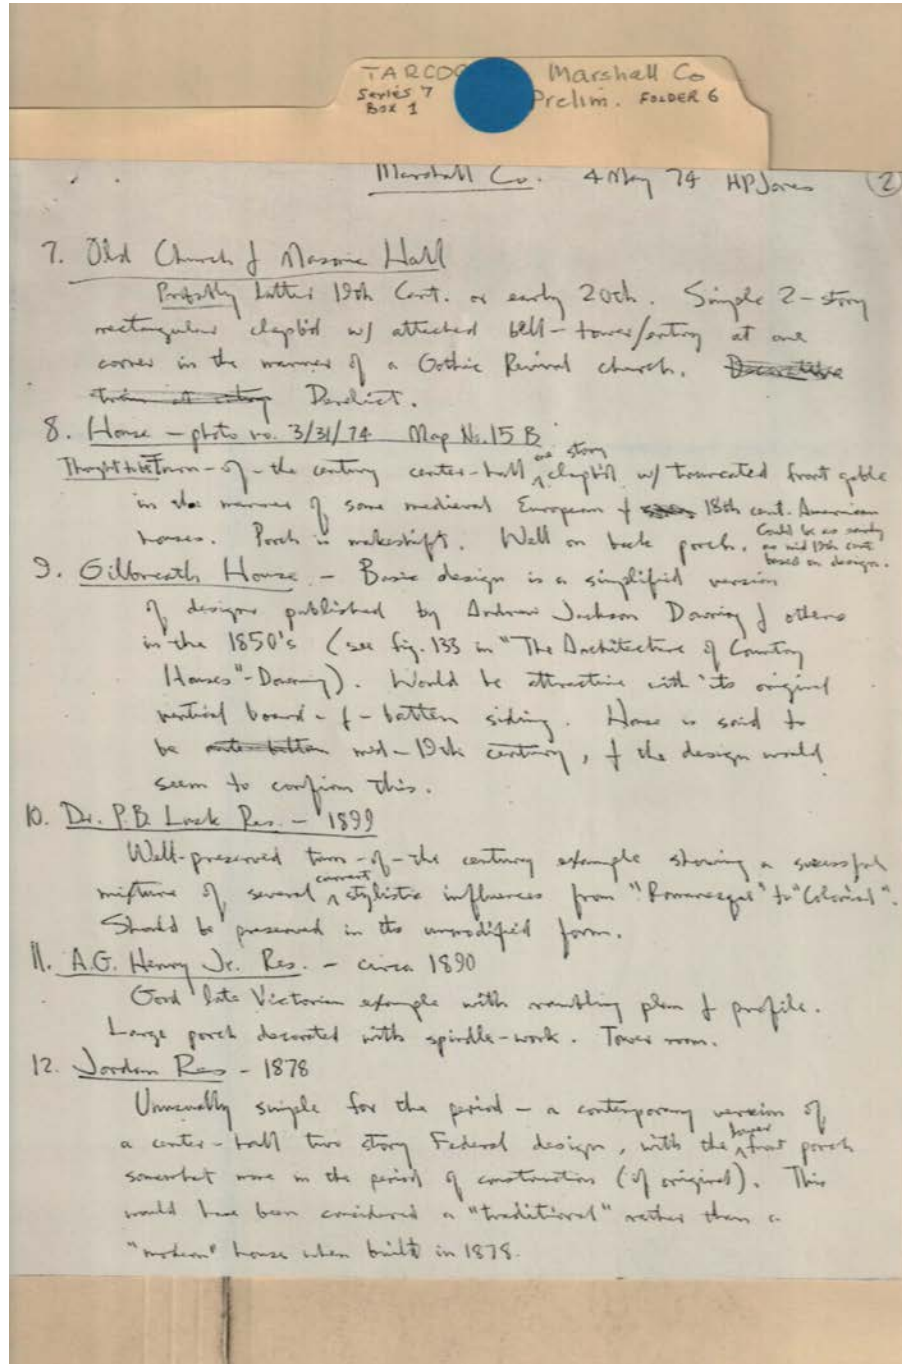 TARCOG Marshall Co
Series 7 Prelim. FOLDER 6
Box 1
Marshall Co. 4 May 74 HPJones 2
7. Old Church & Masonic Hall
Probably latter 19th Cent. or early 20th. Simple 2-story
rectangular clapb'd w/ attached bell-tower/entry at one
corner in the manner of a Gothic Revival church. Decorative
trim at entry Derelict.
8. House - photo no. 3/31/74 Map No. 15 B
one story
Thought to be Turn-of-the century center-hall clapb'd w/ truncated front gable
in the manner of some medieval European & 18th cent. American
houses. Porch is makeshift. Well on back porch. Could be as early
as mid 19th cent
based on design.
9. Gilbreath House - Basic design is a simplified version
of designs published by Andrew Jackson Downing & others
in the 1850's (see fig. 133 in "The Architecture of Country
Houses" - Downing). Would be attractive with its original
vertical board-&-batten siding. House is said to
be mid-19th century, & the design would
seem to confirm this.
10. Dr. P.B. Lusk Res. - 1899
Well-preserved turn-of-the century example showing a sucessful
current
mixture of several stylistic influences from "Romanesque" to "Colonial".
Should be preserved in its unmodified form.
11. A.G. Henry Jr. Res. - circa 1890
Good late Victorian example with rambling plan & profile.
Large porch decorated with spindle-work. Tower room.
12. Jordan Res - 1878
Unusually simple for the period - a contemporary version of
lower
a center-hall two story Federal design, with the front porch
somewhat more in the period of construction (if original). This
would have been considered a "traditional" rather than a
"modern" house when built in 1878.